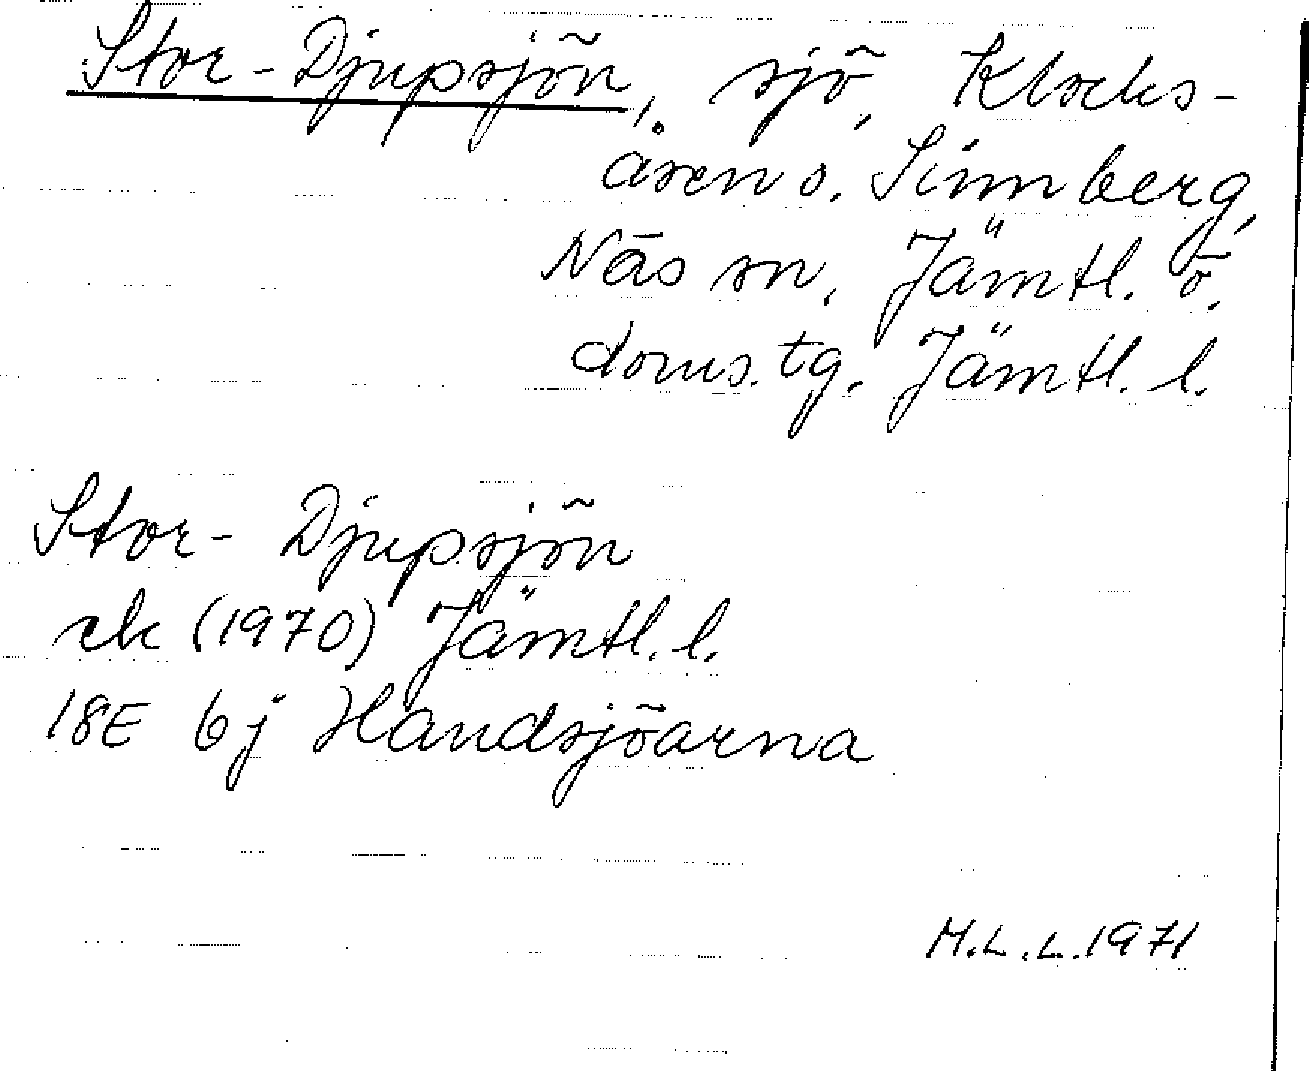 Stor-Djupsjön, sjö, Klocks-
åsen o. Sinnberg,
Näs sn, Jämtl. ö.
doms. tg. Jämtl. l.
Stor-Djupsjön
ek (1970) Jämtl. l.
18E 6j Handsjöarna
M.L.L. 1971